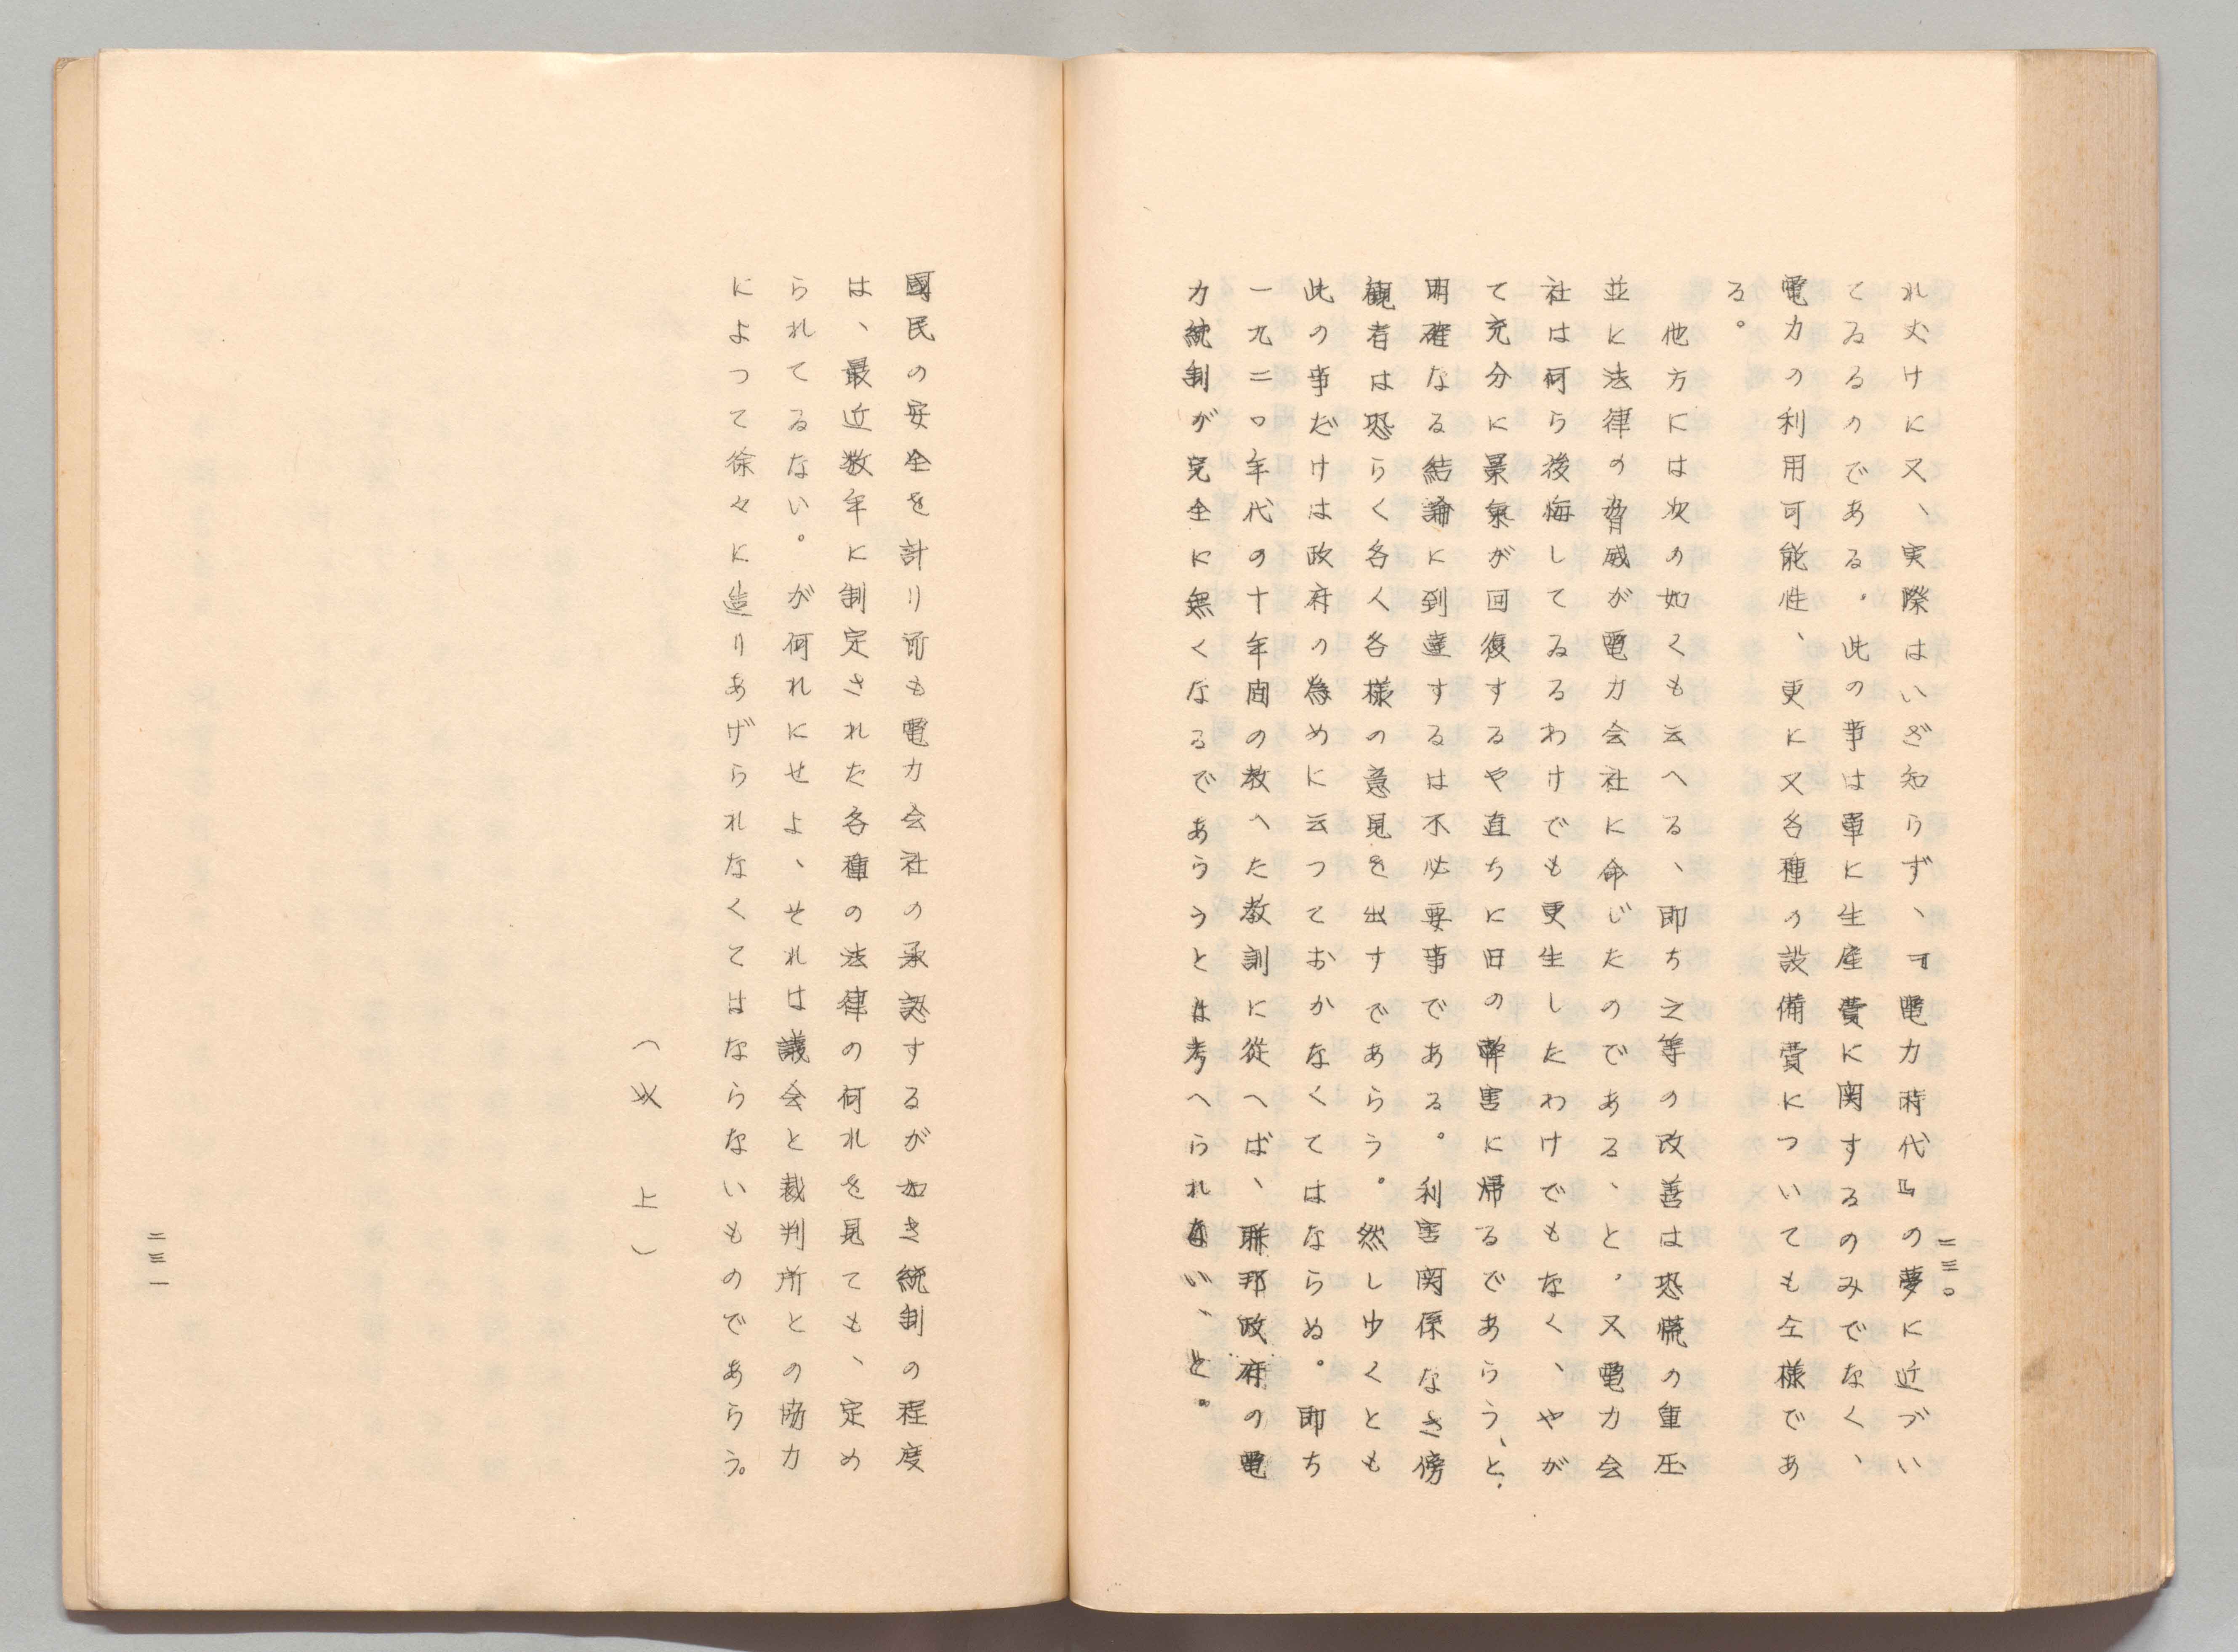 二三〇
れ丈けに又、実際はいざ知らず、『電力時代』の夢に近づい
てゐるのである。此の事は単に生産費に関するのみでなく、
電力の利用可能性、更に又各種の設備費についても仝様であ
る。
他方には次の如くも云へる、即ち之等の改善は恐慌の重圧
並に法律の脅威が電力会社に命じたのである、と。又電力会
社は何ら後悔してゐるわけでも更生したわけでもなく、やが
て充分に景氣が回復するや直ちに旧の弊害に帰るであらう、と。
明確なる結論に到達するは不必要事である。利害関係なき傍
観者は恐らく各人各様の意見を出すであらう。然し少くとも
此の事だけは政府の為めに云つておかなくてはならぬ。即ち
一九二〇年代の十年間の教へた教訓に従へば、聯邦政府の電
力統制が完全に無くなるであらうとは考へられない、と。
國民の安全を計り而も電力会社の承認するが如き統制の程度
は、最近数年に制定された各種の法律の何れを見ても、定め
られてゐない。が何れにせよ、それは議会と裁判所との協力
によつて徐々に造りあげられなくてはならないものであらう。
（以上）
二三一